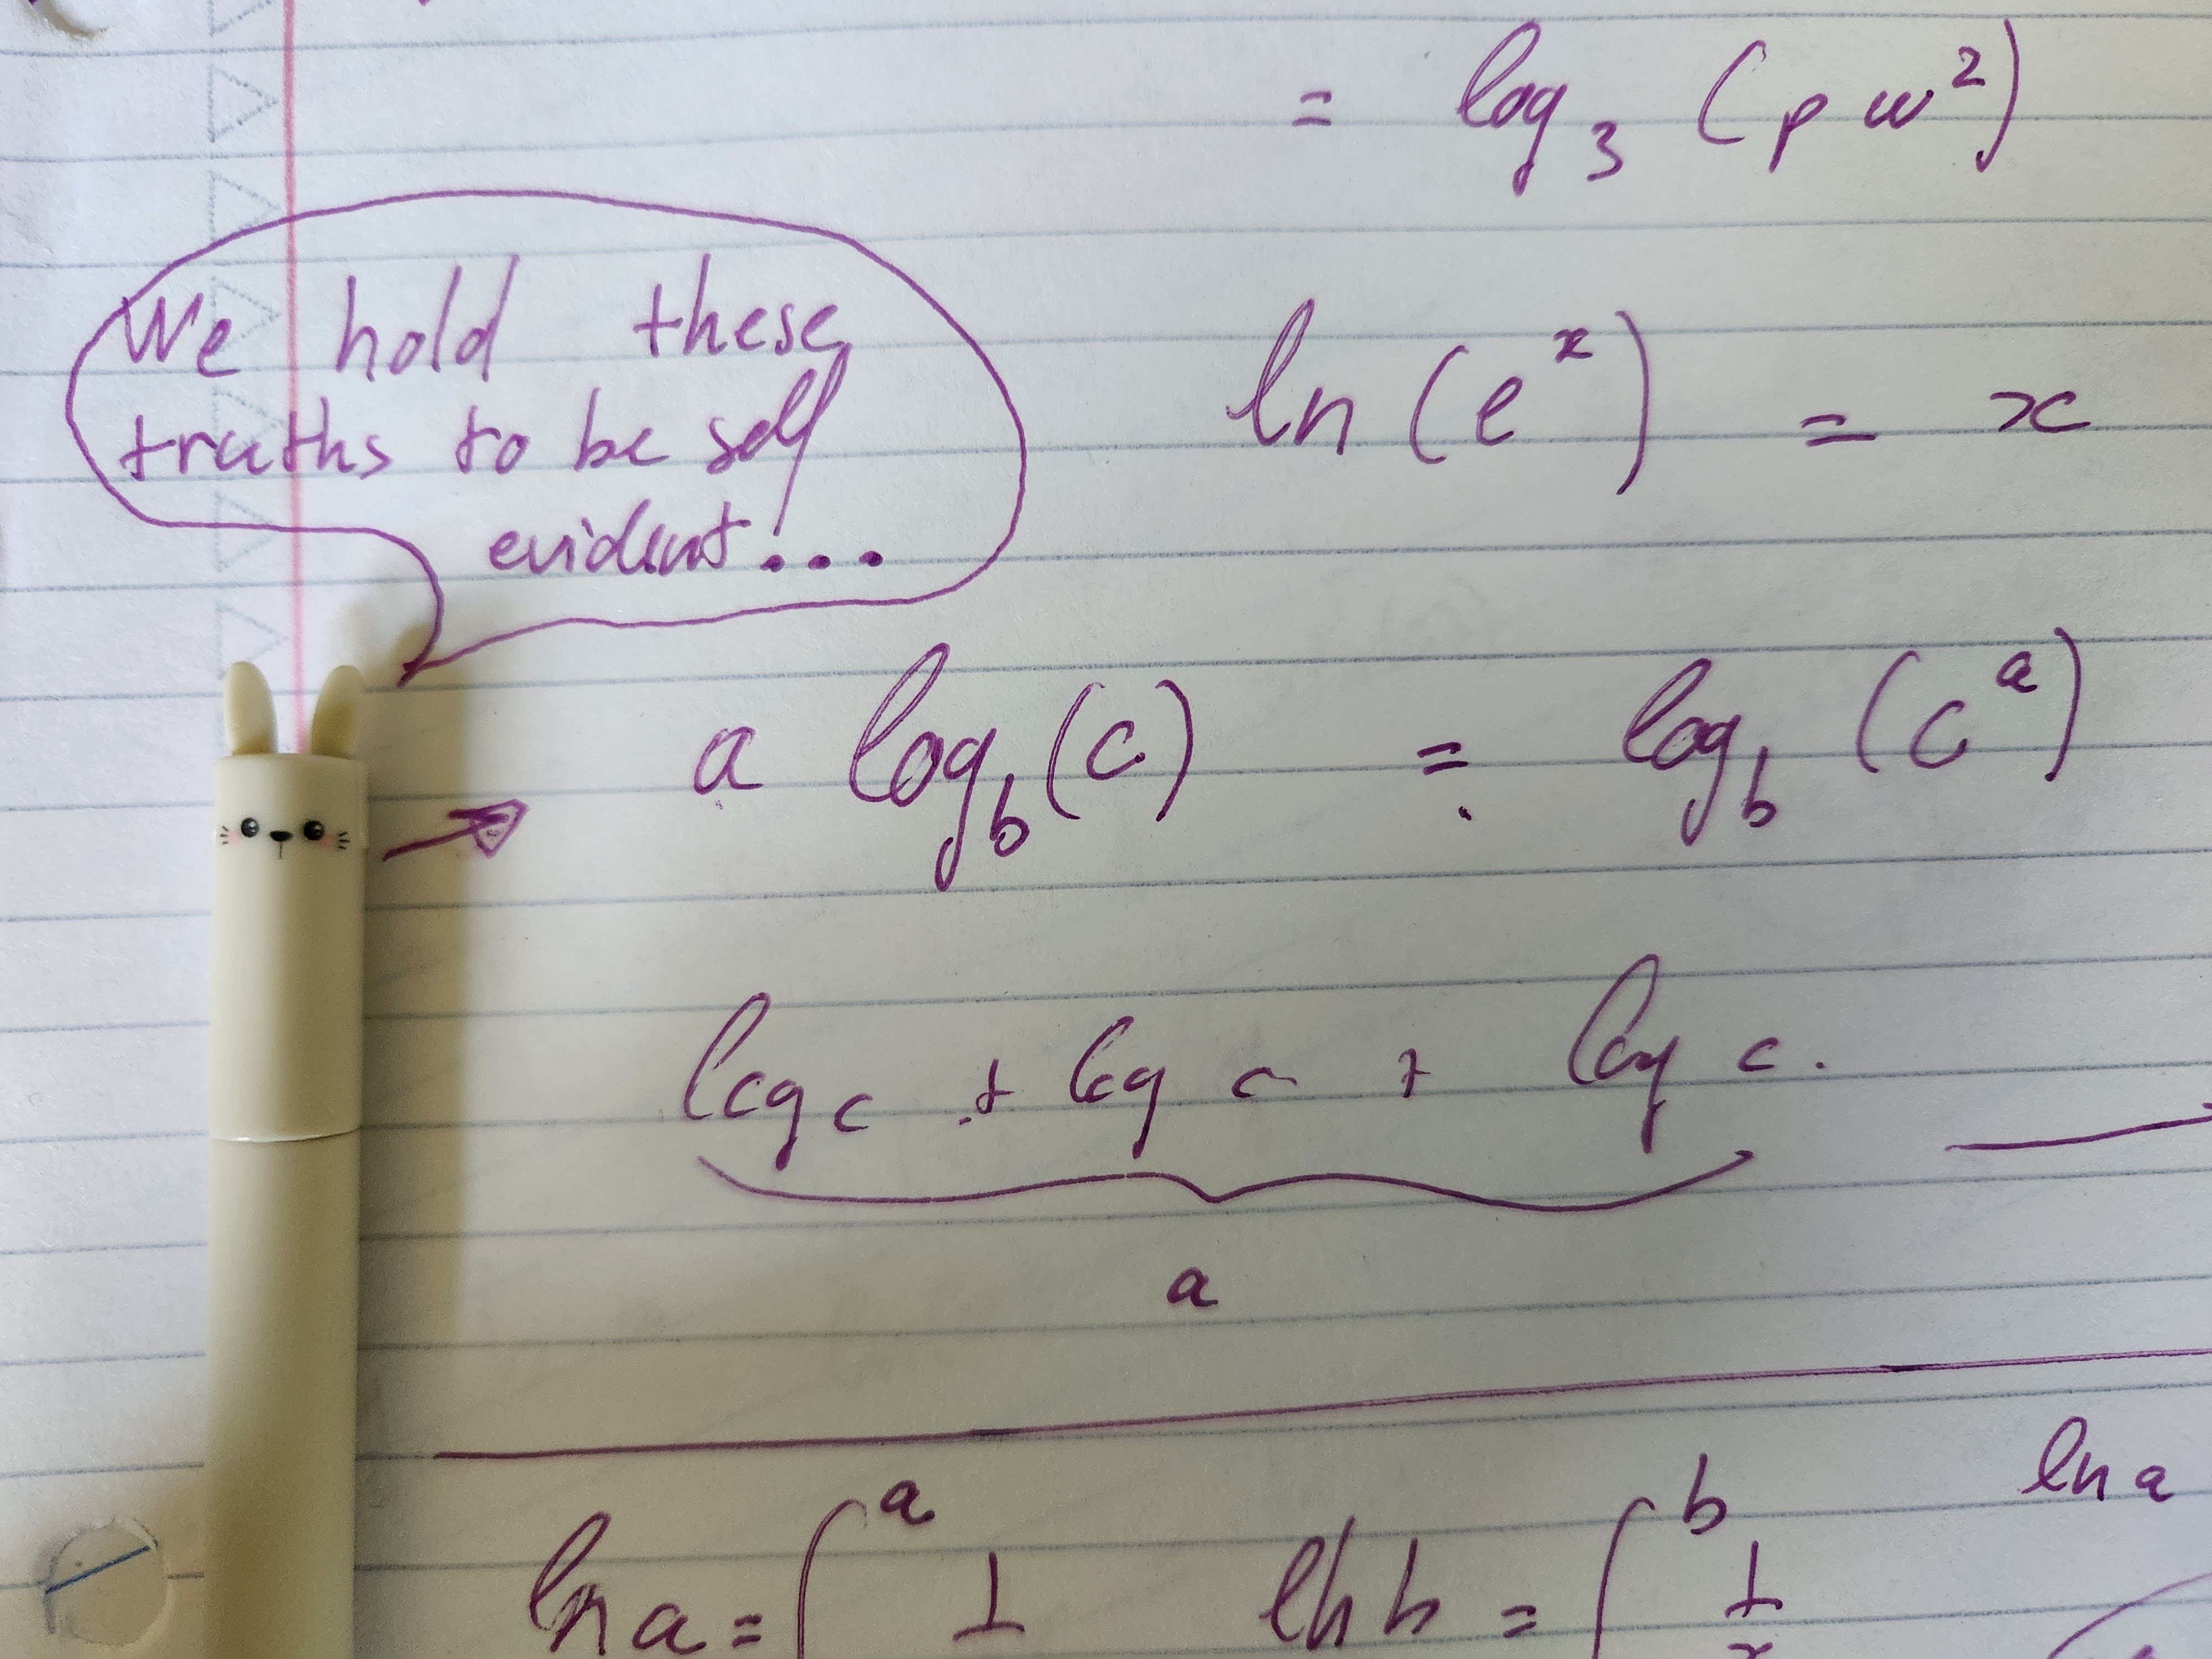 = log₃ (p w²)
We hold these
truths to be self
evident...
ln (eˣ) = x
a log_b (c) = log_b (cᵃ)
log c + log c + log c.
a
ln a = ∫ᵃ 1
ln b = ∫ᵇ 1
ln a